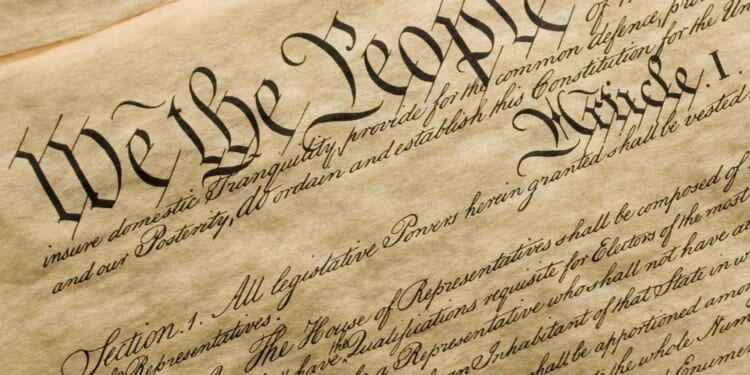 We the People
of
insure domestic Tranquility, provide for the common defence,
and our Posterity, do ordain and establish this Constitution for the Un
Article. I.
Section. 1. All legislative Powers herein granted shall be vested
Representatives.
The House of Representatives shall be composed of
the
have Qualifications requisite for Electors of the most
a Representative who shall not have at
an Inhabitant of that State in w
shall be apportioned amo
the whole Num
Enumer